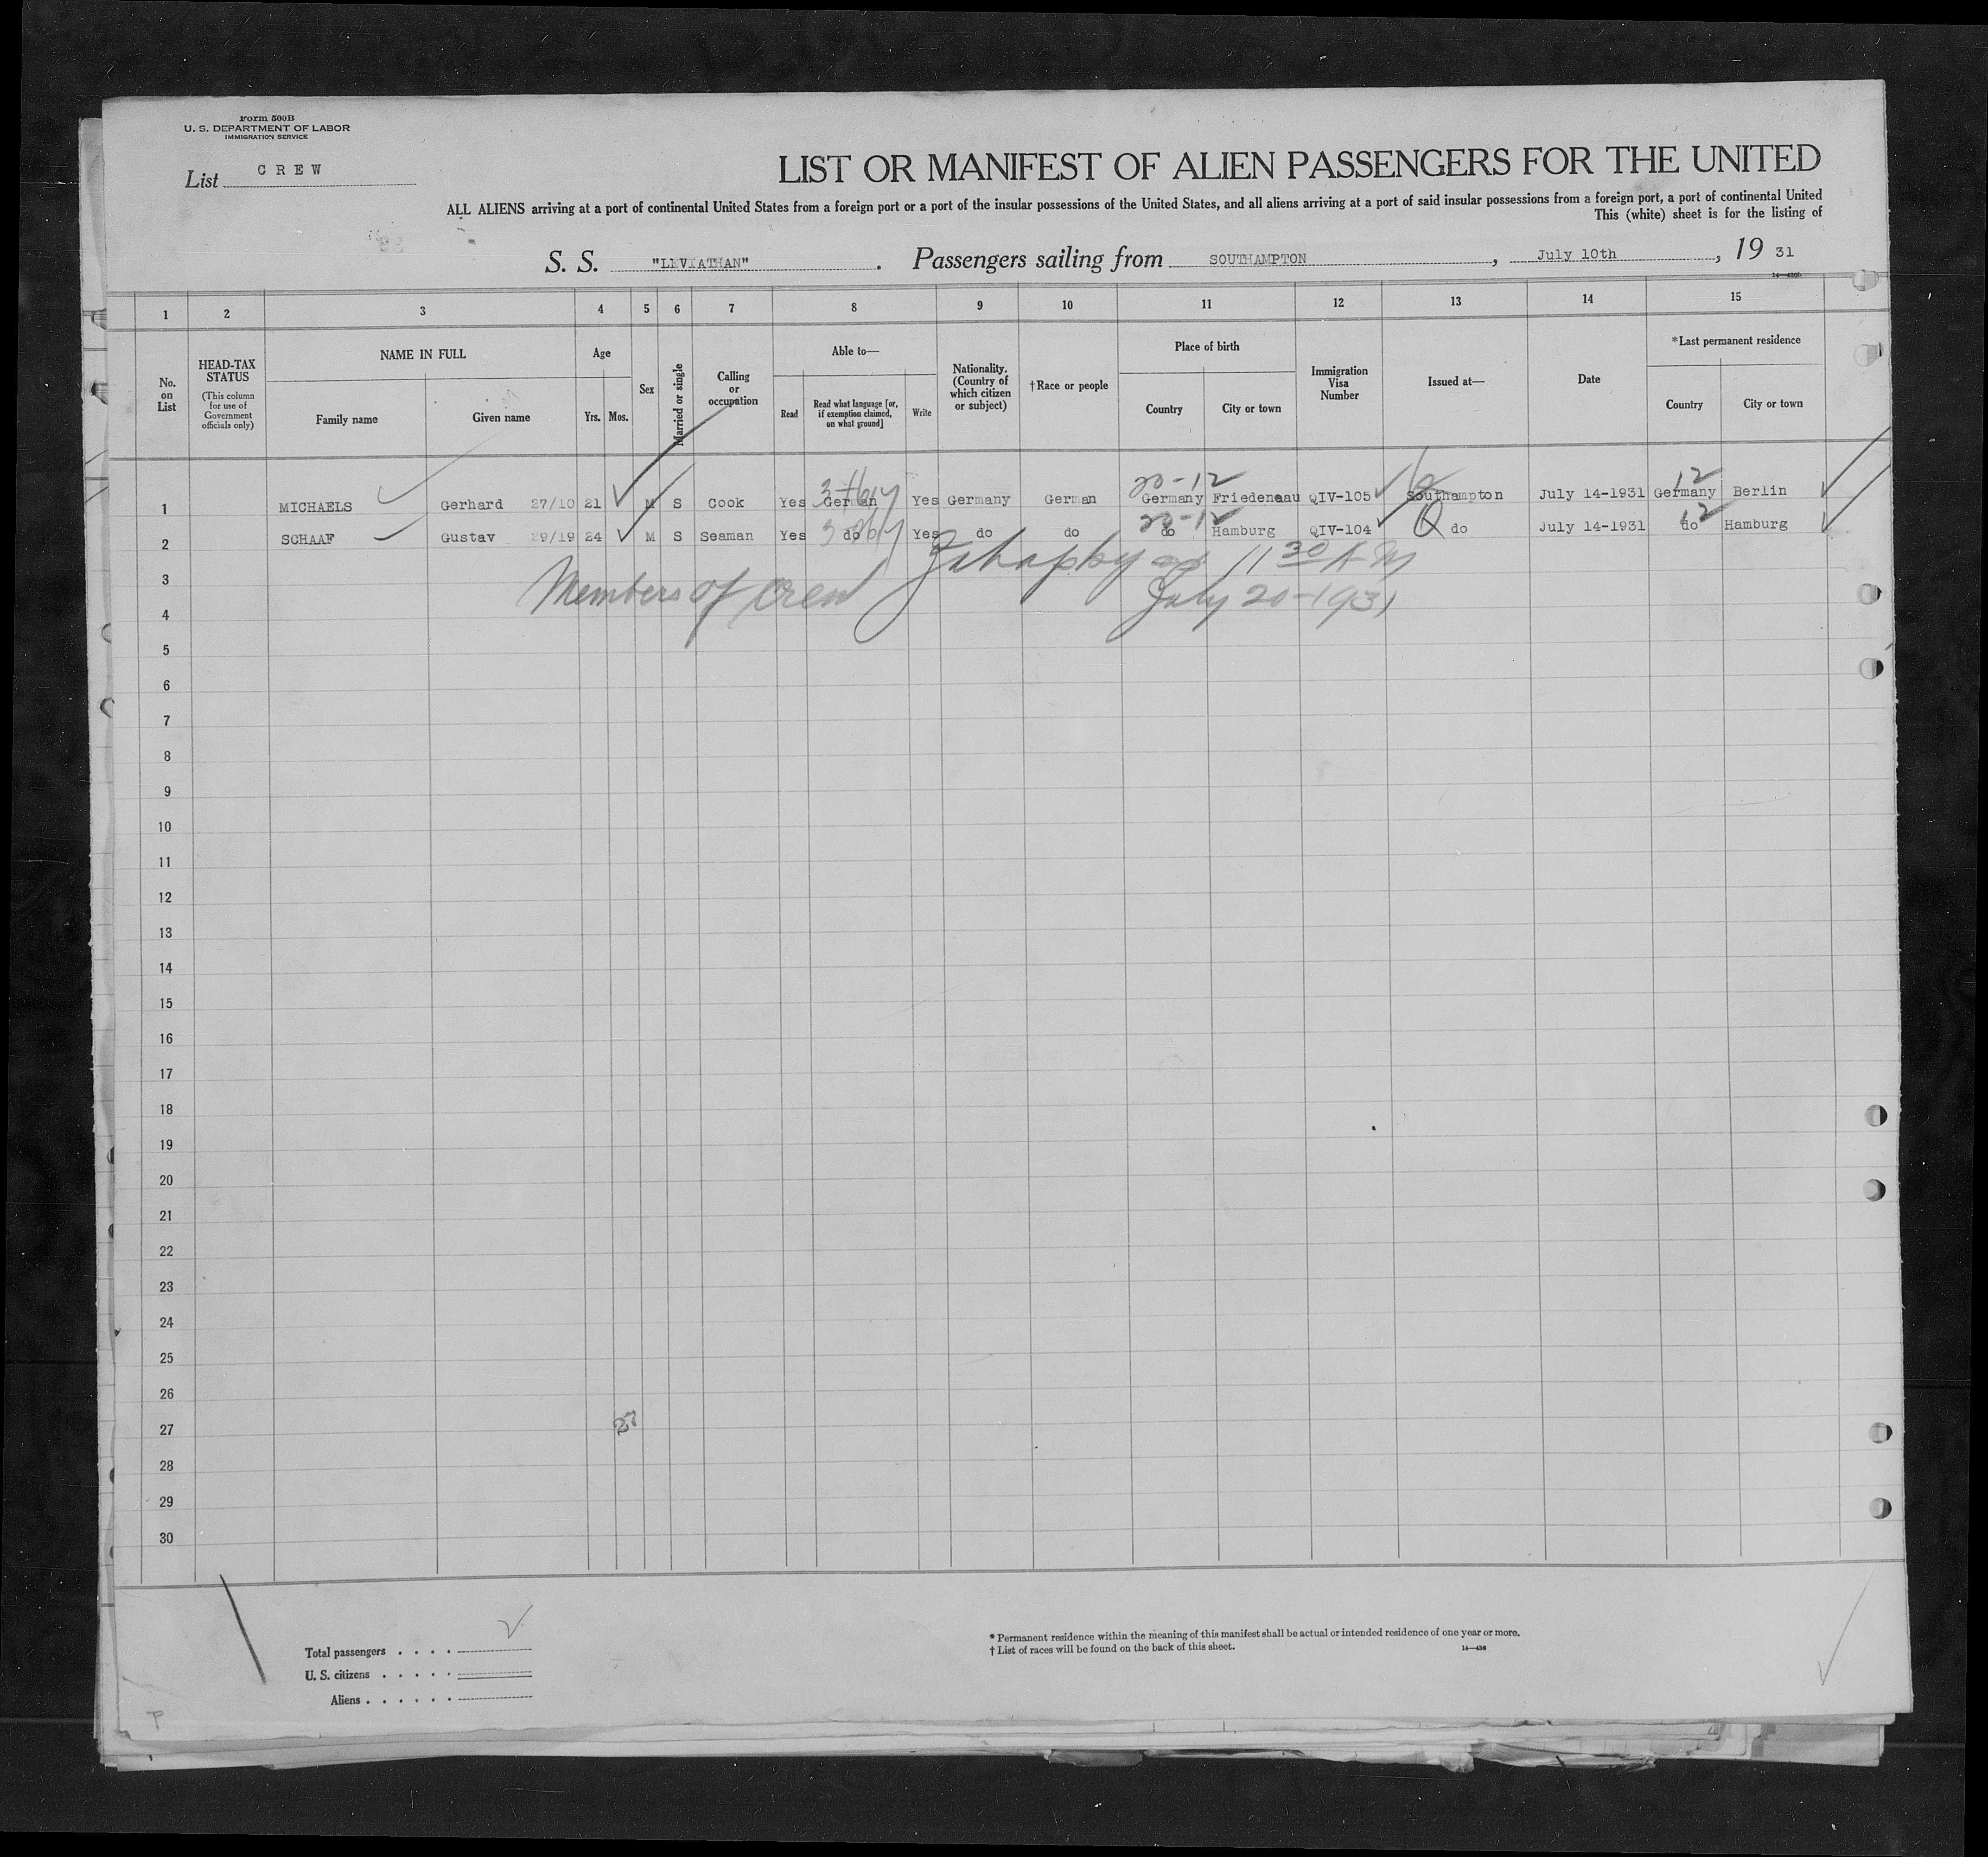 Form 500B
U. S. DEPARTMENT OF LABOR
IMMIGRATION SERVICE
List CREW
LIST OR MANIFEST OF ALIEN PASSENGERS FOR THE UNITED
ALL ALIENS arriving at a port of continental United States from a foreign port or a port of the insular possessions of the United States, and all aliens arriving at a port of said insular possessions from a foreign port, a port of continental United
This (white) sheet is for the listing of
S. S. "LEVIATHAN". Passengers sailing from SOUTHAMPTON, July 10th, 19 31
1 2 3 4 5 6 7 8 9 10 11 12 13 14 15
No. on List
HEAD-TAX STATUS (This column for use of Government officials only)
NAME IN FULL
Family name Given name
Age
Yrs. Mos.
Sex
Married or single
Calling or occupation
Able to—
Read Read what language [or, if exemption claimed, on what ground] Write
Nationality. (Country of which citizen or subject)
†Race or people
Place of birth
Country City or town
Immigration Visa Number
Issued at—
Date
*Last permanent residence
Country City or town
20-12 12
1 MICHAELS Gerhard 27/10 21 M S Cook Yes German Yes Germany German Germany Friedenaau QIV-105 Southampton July 14-1931 Germany Berlin
20-12 12
2 SCHAAF Gustav 29/19 24 M S Seaman Yes do Yes do do do Hamburg QIV-104 do July 14-1931 do Hamburg
11 30 AM
3
Members of crew July 20-1931
4
5
6
7
8
9
10
11
12
13
14
15
16
17
18
19
20
21
22
23
24
25
26
27 27
28
29
30
Total passengers . . . .
U. S. citizens . . . . .
Aliens . . . . . .
* Permanent residence within the meaning of this manifest shall be actual or intended residence of one year or more.
† List of races will be found on the back of this sheet.
P